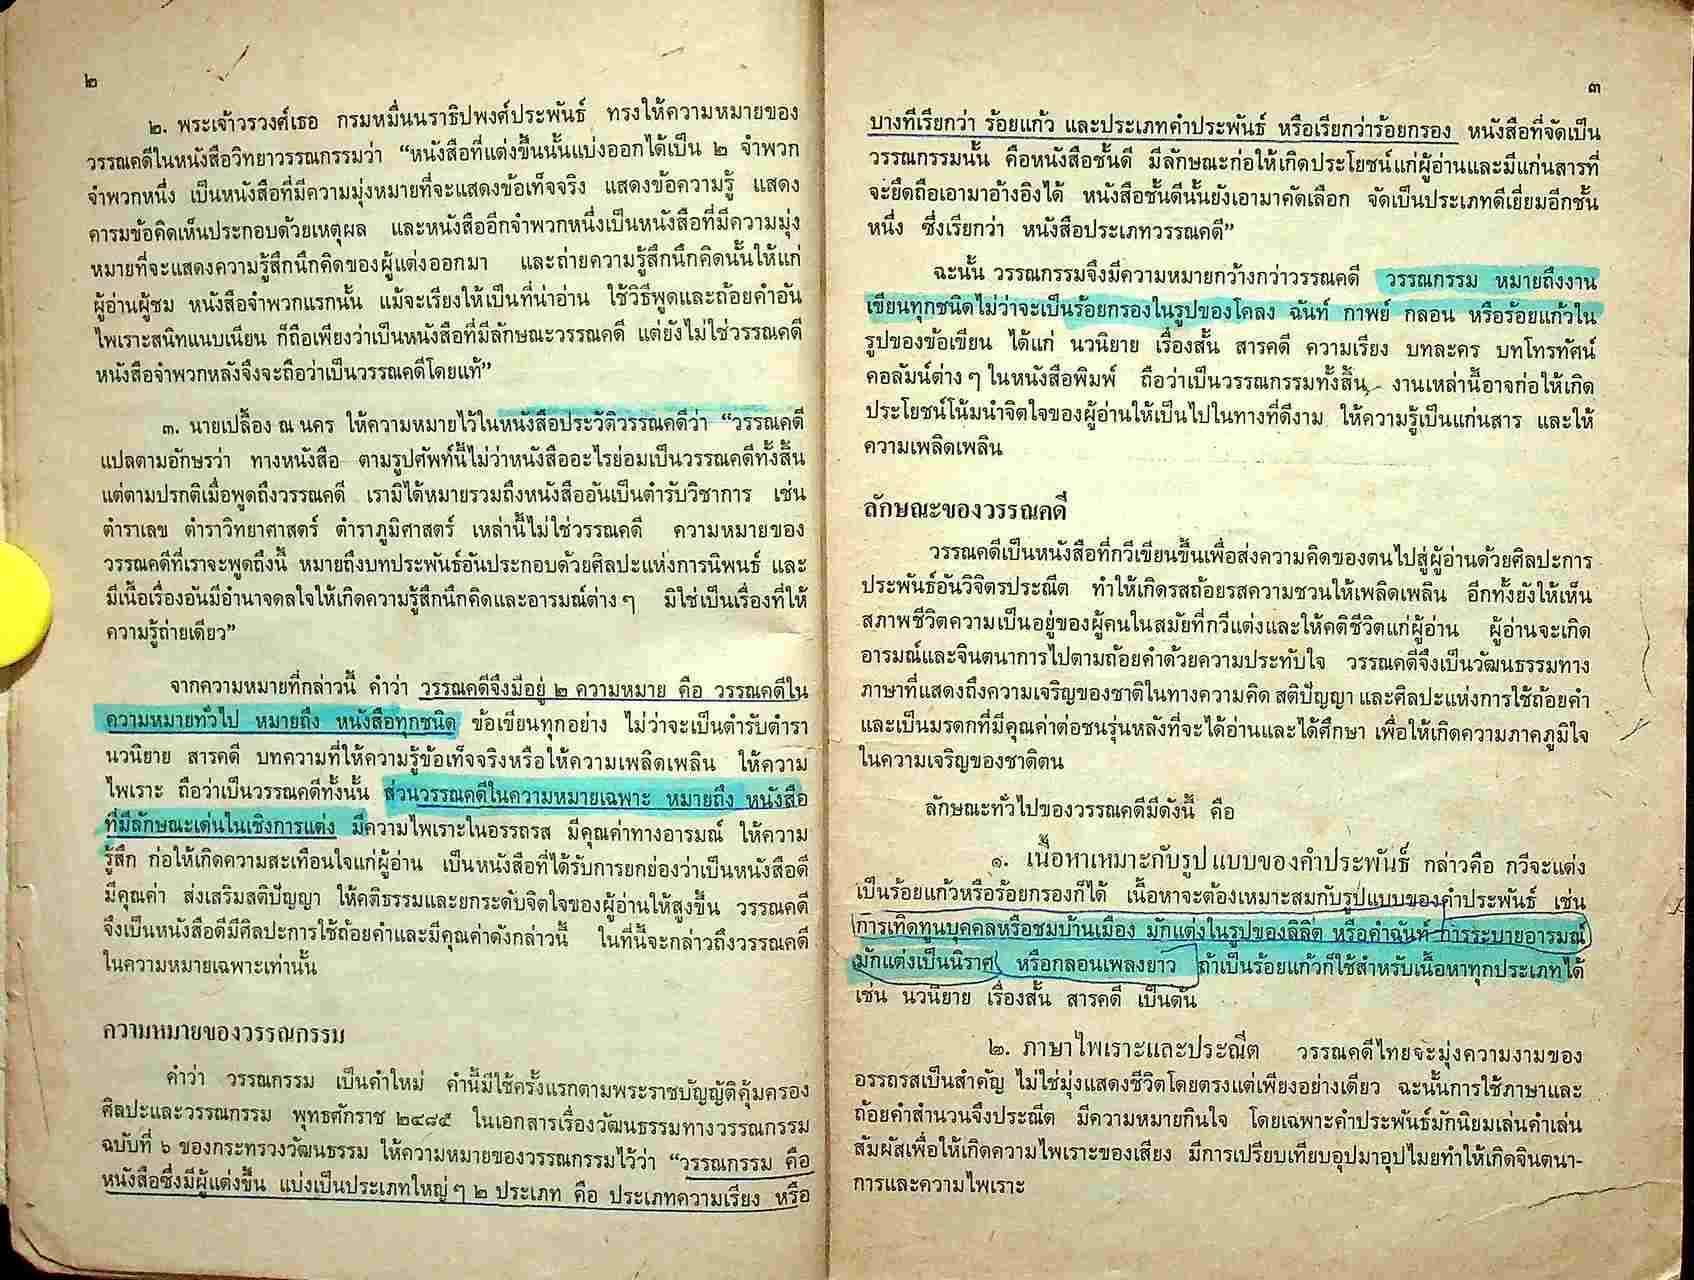 ๒
๒. พระเจ้าวรวงศ์เธอ กรมหมื่นนราธิปพงศ์ประพันธ์ ทรงให้ความหมายของ
วรรณคดีในหนังสือวิทยาวรรณกรรมว่า “หนังสือที่แต่งขึ้นนั้นแบ่งออกได้เป็น ๒ จำพวก
จำพวกหนึ่ง เป็นหนังสือที่มีความมุ่งหมายที่จะแสดงข้อเท็จจริง แสดงข้อความรู้ แสดง
คารมข้อคิดเห็นประกอบด้วยเหตุผล และหนังสืออีกจำพวกหนึ่งเป็นหนังสือที่มีความมุ่ง
หมายที่จะแสดงความรู้สึกนึกคิดของผู้แต่งออกมา และถ่ายความรู้สึกนึกคิดนั้นให้แก่
ผู้อ่านผู้ชม หนังสือจำพวกแรกนั้น แม้จะเรียงให้เป็นที่น่าอ่าน ใช้วิธีพูดและถ้อยคำอัน
ไพเราะสนิทแนบเนียน ก็ถือเพียงว่าเป็นหนังสือที่มีลักษณะวรรณคดี แต่ยังไม่ใช่วรรณคดี
หนังสือจำพวกหลังจึงจะถือว่าเป็นวรรณคดีโดยแท้”
๓. นายเปลื้อง ณ นคร ให้ความหมายไว้ในหนังสือประวัติวรรณคดีว่า “วรรณคดี
แปลตามอักษรว่า ทางหนังสือ ตามรูปศัพท์นี้ไม่ว่าหนังสืออะไรย่อมเป็นวรรณคดีทั้งสิ้น
แต่ตามปรกติเมื่อพูดถึงวรรณคดี เรามิได้หมายรวมถึงหนังสืออันเป็นตำรับวิชาการ เช่น
ตำราเลข ตำราวิทยาศาสตร์ ตำราภูมิศาสตร์ เหล่านี้ไม่ใช่วรรณคดี ความหมายของ
วรรณคดีที่เราจะพูดถึงนี้ หมายถึงบทประพันธ์อันประกอบด้วยศิลปะแห่งการนิพนธ์ และ
มีเนื้อเรื่องอันมีอำนาจดลใจให้เกิดความรู้สึกนึกคิดและอารมณ์ต่าง ๆ มิใช่เป็นเรื่องที่ให้
ความรู้ถ่ายเดียว”
จากความหมายที่กล่าวนี้ คำว่า วรรณคดีจึงมีอยู่ ๒ ความหมาย คือ วรรณคดีใน
ความหมายทั่วไป หมายถึง หนังสือทุกชนิด ข้อเขียนทุกอย่าง ไม่ว่าจะเป็นตำรับตำรา
นวนิยาย สารคดี บทความที่ให้ความรู้ข้อเท็จจริงหรือให้ความเพลิดเพลิน ให้ความ
ไพเราะ ถือว่าเป็นวรรณคดีทั้งนั้น ส่วนวรรณคดีในความหมายเฉพาะ หมายถึง หนังสือ
ที่มีลักษณะเด่นในเชิงการแต่ง มีความไพเราะในอรรถรส มีคุณค่าทางอารมณ์ ให้ความ
รู้สึก ก่อให้เกิดความสะเทือนใจแก่ผู้อ่าน เป็นหนังสือที่ได้รับการยกย่องว่าเป็นหนังสือดี
มีคุณค่า ส่งเสริมสติปัญญา ให้คติธรรมและยกระดับจิตใจของผู้อ่านให้สูงขึ้น วรรณคดี
จึงเป็นหนังสือดีมีศิลปะการใช้ถ้อยคำและมีคุณค่าดังกล่าวนี้ ในที่นี้จะกล่าวถึงวรรณคดี
ในความหมายเฉพาะเท่านั้น
ความหมายของวรรณกรรม
คำว่า วรรณกรรม เป็นคำใหม่ คำนี้มีใช้ครั้งแรกตามพระราชบัญญัติคุ้มครอง
ศิลปะและวรรณกรรม พุทธศักราช ๒๔๘๕ ในเอกสารเรื่องวัฒนธรรมทางวรรณกรรม
ฉบับที่ ๖ ของกระทรวงวัฒนธรรม ให้ความหมายของวรรณกรรมไว้ว่า “วรรณกรรม คือ
หนังสือซึ่งมีผู้แต่งขึ้น แบ่งเป็นประเภทใหญ่ ๆ ๒ ประเภท คือ ประเภทความเรียง หรือ
๓
บางทีเรียกว่า ร้อยแก้ว และประเภทคำประพันธ์ หรือเรียกว่าร้อยกรอง หนังสือที่จัดเป็น
วรรณกรรมนั้น คือหนังสือชั้นดี มีลักษณะก่อให้เกิดประโยชน์แก่ผู้อ่านและมีแก่นสารที่
จะยึดถือเอามาอ้างอิงได้ หนังสือชั้นดีนั้นยังเอามาคัดเลือก จัดเป็นประเภทดีเยี่ยมอีกชั้น
หนึ่ง ซึ่งเรียกว่า หนังสือประเภทวรรณคดี”
ฉะนั้น วรรณกรรมจึงมีความหมายกว้างกว่าวรรณคดี วรรณกรรม หมายถึงงาน
เขียนทุกชนิดไม่ว่าจะเป็นร้อยกรองในรูปของโคลง ฉันท์ กาพย์ กลอน หรือร้อยแก้วใน
รูปของข้อเขียน ได้แก่ นวนิยาย เรื่องสั้น สารคดี ความเรียง บทละคร บทโทรทัศน์
คอลัมน์ต่าง ๆ ในหนังสือพิมพ์ ถือว่าเป็นวรรณกรรมทั้งสิ้น งานเหล่านี้อาจก่อให้เกิด
ประโยชน์โน้มนำจิตใจของผู้อ่านให้เป็นไปในทางที่ดีงาม ให้ความรู้เป็นแก่นสาร และให้
ความเพลิดเพลิน
ลักษณะของวรรณคดี
วรรณคดีเป็นหนังสือที่กวีเขียนขึ้นเพื่อส่งความคิดของตนไปสู่ผู้อ่านด้วยศิลปะการ
ประพันธ์อันวิจิตรประณีต ทำให้เกิดรสถ้อยรสความชวนให้เพลิดเพลิน อีกทั้งยังให้เห็น
สภาพชีวิตความเป็นอยู่ของผู้คนในสมัยที่กวีแต่งและให้คติชีวิตแก่ผู้อ่าน ผู้อ่านจะเกิด
อารมณ์และจินตนาการไปตามถ้อยคำด้วยความประทับใจ วรรณคดีจึงเป็นวัฒนธรรมทาง
ภาษาที่แสดงถึงความเจริญของชาติในทางความคิด สติปัญญา และศิลปะแห่งการใช้ถ้อยคำ
และเป็นมรดกที่มีคุณค่าต่อชนรุ่นหลังที่จะได้อ่านและได้ศึกษา เพื่อให้เกิดความภาคภูมิใจ
ในความเจริญของชาติตน
ลักษณะทั่วไปของวรรณคดีมีดังนี้ คือ
๑. เนื้อหาเหมาะกับรูปแบบของคำประพันธ์ กล่าวคือ กวีจะแต่ง
เป็นร้อยแก้วหรือร้อยกรองก็ได้ เนื้อหาจะต้องเหมาะสมกับรูปแบบของคำประพันธ์ เช่น
การเทิดทูนบุคคลหรือชมบ้านเมือง มักแต่งในรูปของลิลิต หรือคำฉันท์ การระบายอารมณ์
มักแต่งเป็นนิราศ หรือกลอนเพลงยาว ถ้าเป็นร้อยแก้วก็ใช้สำหรับเนื้อหาทุกประเภทได้
เช่น นวนิยาย เรื่องสั้น สารคดี เป็นต้น
๒. ภาษาไพเราะและประณีต วรรณคดีไทยจะมุ่งความงามของ
อรรถรสเป็นสำคัญ ไม่ใช่มุ่งแสดงชีวิตโดยตรงแต่เพียงอย่างเดียว ฉะนั้นการใช้ภาษาและ
ถ้อยคำสำนวนจึงประณีต มีความหมายกินใจ โดยเฉพาะคำประพันธ์มักนิยมเล่นคำเล่น
สัมผัสเพื่อให้เกิดความไพเราะของเสียง มีการเปรียบเทียบอุปมาอุปไมยทำให้เกิดจินตนา-
การและความไพเราะ